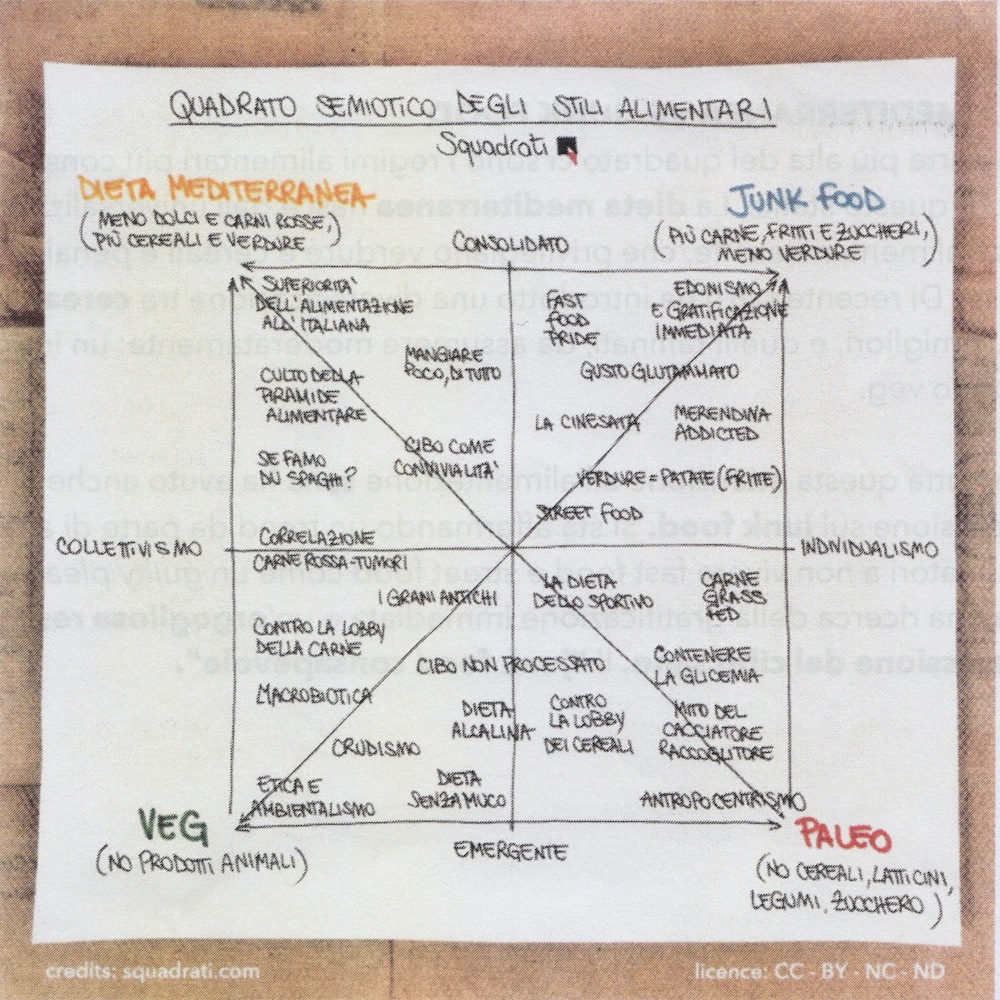 QUADRATO SEMIOTICO DEGLI STILI ALIMENTARI
Squadrati
DIETA MEDITERRANEA
(MENO DOLCI E CARNI ROSSE,
PIÙ CEREALI E VERDURE)
CONSOLIDATO
JUNK FOOD
(PIÙ CARNE, FRITTI E ZUCCHERI,
MENO VERDURE)
SUPERIORITA'
DELL'ALIMENTAZIONE
ALL'ITALIANA
MANGIARE
POCO, DI TUTTO
CULTO DELLA
PIRAMIDE
ALIMENTARE
CIBO COME
CONVIVIALITA'
SE FAMO
DU SPAGHI?
FAST
FOOD
PRIDE
EDONISMO
E GRATIFICAZIONE
IMMEDIATA
GUSTO GLUTAMMATO
LA CINESATA
MERENDINA
ADDICTED
VERDURE = PATATE (FRITTE)
STREET FOOD
COLLETTIVISMO
INDIVIDUALISMO
CORRELAZIONE
CARNE ROSSA-TUMORI
I GRANI ANTICHI
CONTRO LA LOBBY
DELLA CARNE
CIBO NON PROCESSATO
MACROBIOTICA
DIETA
ALCALINA
CRUDISMO
ETICA E
AMBIENTALISMO
DIETA
SENZA MUCO
LA DIETA
DELLO SPORTIVO
CARNE
GRASS
FED
CONTENERE
LA GLICEMIA
CONTRO
LA LOBBY
DEI CEREALI
MITO DEL
CACCIATORE
RACCOGLITORE
ANTROPOCENTRISMO
VEG
(NO PRODOTTI ANIMALI)
EMERGENTE
PALEO
(NO CEREALI, LATTICINI,
LEGUMI, ZUCCHERO)
credits: squadrati.com
licence: CC - BY - NC - ND